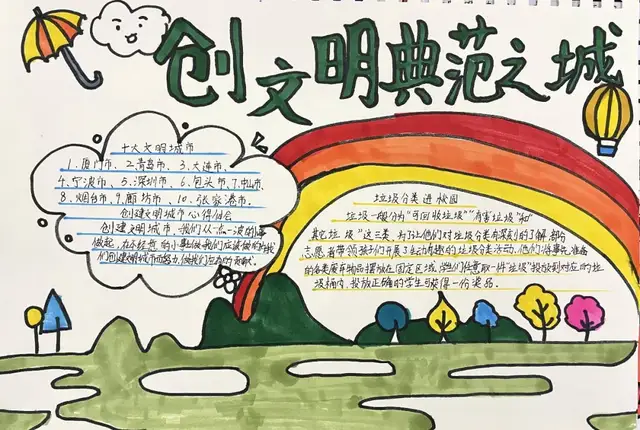 创文明典范之城
十大文明城市
1、厦门市、2、青岛市、3、大连市、
4、宁波市、5、深圳市、6、包头市、7、中山市、
8、烟台市、9、廊坊市、10、张家港市、
创建文明城市心得体会
创建文明城市，我们从一点一滴的
做起，在不经意的小事做
我们创建文明城市而努力，做我们应有的贡献。
垃圾分类进校园
垃圾一般分为“可回收垃圾”“有害垃圾”和“
其它垃圾”这三类，为了让他们对垃圾分类有深刻的了解，部分
志愿者带领孩子们开展了生动有趣的垃圾分类活动，他们游事先准备
的各类废弃物品摆放在固定区域，学生们任意取一件“垃圾”投放到对应的垃
圾桶内，投放正确的学生可获得一份奖品。